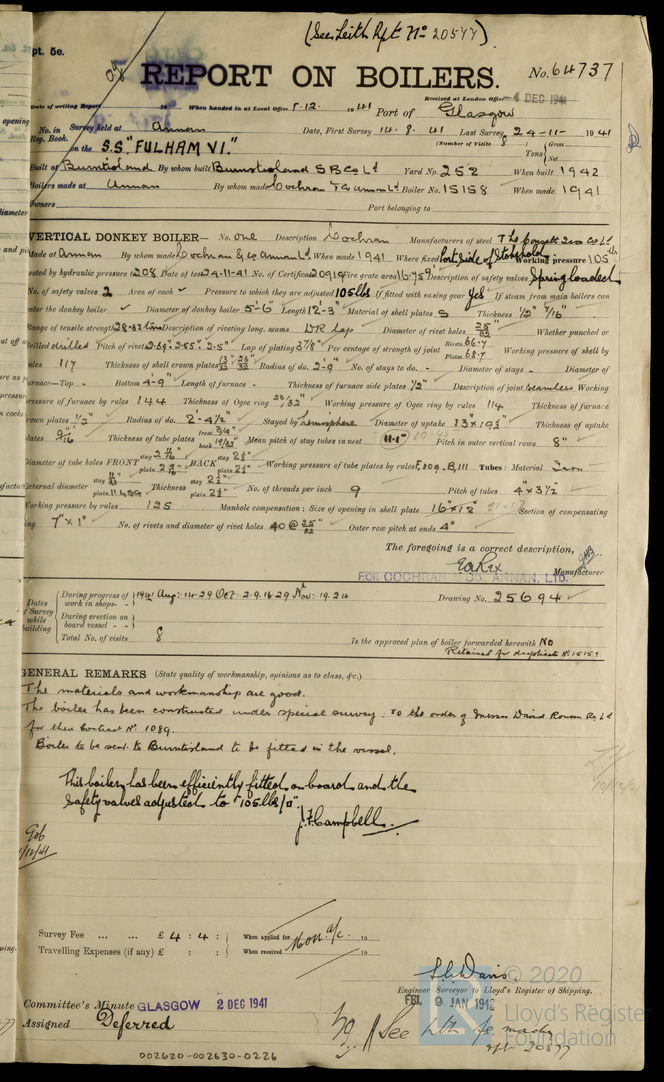 (See Leith Rpt No 20577)
pt. 5e.
REPORT ON BOILERS.
No. 64737
Date of writing Report 19 When handed in at Local Office 1.12. 1941 Port of Glasgow
Received at London Office 4 DEC 1941
No. in Reg. Book. Survey held at Annan Date, First Survey 14.8.41 Last Survey 24-11- 1941
on the S.S "FULHAM VI." (Number of Visits 8) Tons Gross Net
Built at Burntisland By whom built Burntisland S B Co Ld Yard No. 252 When built 1942
Boilers made at Annan By whom made Cochran & Co Annan Ld. Boiler No. 15158 When made 1941
Owners Port belonging to
VERTICAL DONKEY BOILER— No. One Description Cochran Manufacturers of steel The Consett Iron Co Ld
Made at Annan By whom made Cochran & Co Annan Ld. When made 1941 Where fixed Port side of Stokehold Working pressure 105 lbs
tested by hydraulic pressure to 208 Date of test 24-11-41 No. of Certificate 20914 Fire grate area 16.75 Description of safety valves Spring loaded
No. of safety valves 2 Area of each Pressure to which they are adjusted 105 lbs If fitted with easing gear Yes If steam from main boilers can
enter the donkey boiler Diameter of donkey boiler 5'-6" Length 12'-3" Material of shell plates S Thickness 1/2" 9/16"
Range of tensile strength 28-32 tons Description of riveting long. seams DR lap Diameter of rivet holes 25/32 Whether punched or
drilled drilled Pitch of rivets 2.69" 2.55" 2.5" Lap of plating 3 7/8" Per centage of strength of joint Rivets 66.7 Plates 68.7 Working pressure of shell by
rules 117 Thickness of shell crown plates 13/16" 23/32" Radius of do. 2'-9" No. of stays to do. - Diameter of stays - Diameter of
furnace—Top - Bottom 4-9" Length of furnace - Thickness of furnace side plates 1/2" Description of joint seamless Working
pressure of furnace by rules 144 Thickness of Ogee ring 25/32" Working pressure of Ogee ring by rules 114 Thickness of furnace
crown plates 1/2" Radius of do. 2'-4 1/2" Stayed by hemisphere Diameter of uptake 13" x 19 1/2" Thickness of uptake
plates 9/16 Thickness of tube plates front 3/4" back 19/32" Mean pitch of stay tubes in nest 11.1" Pitch in outer vertical rows 8"
Diameter of tube holes FRONT stay 2 9/16" plain 2 9/16" BACK stay 2 1/2" plain 2 1/2" Working pressure of tube plates by rules F, 209. B, 111 Tubes: Material Iron
External diameter stay plain Thickness stay 2 1/2" plain 2 1/2" No. of threads per inch 9 Pitch of tubes 4" x 3 1/2"
Working pressure by rules 125 Manhole compensation: Size of opening in shell plate 16" x 12" Section of compensating
ring 7" x 1" No. of rivets and diameter of rivet holes 40 @ 25/32" Outer row pitch at ends 4"
The foregoing is a correct description,
Manufacturer
FOR COCHRAN & CO. ANNAN, LTD.
Dates of Survey while building During progress of work in shops - - 1941 Aug: 14.29 Oct: 2.9.16.29 Nov: 19.24 Drawing No. 25694
During erection on board vessel - -
Total No. of visits 8 Is the approved plan of boiler forwarded herewith No
Retained for duplicate No. 15159
GENERAL REMARKS (State quality of workmanship, opinions as to class, &c.)
The materials and workmanship are good.
The boiler has been constructed under special survey. To the order of Messrs David Rowan & Co Ld
for their Contract No. 1089.
Boiler to be sent to Burntisland to be fitted in the vessel.
This boiler has been efficiently fitted on board and the
safety valves adjusted to 105 lbs/□".
J. F. Campbell.
Survey Fee ... ... £ 4 : 4 : When applied for Mon. a/c. 19
Travelling Expenses (if any) £ : : When received 19
Engineer Surveyor to Lloyd's Register of Shipping.
© 2020
Lloyd's Register
Foundation
FRI. 9 JAN 1942
Committee's Minute GLASGOW 2 DEC 1941
Assigned Deferred
See Lth Je. machy
rpt 20577
002620-002630-0226